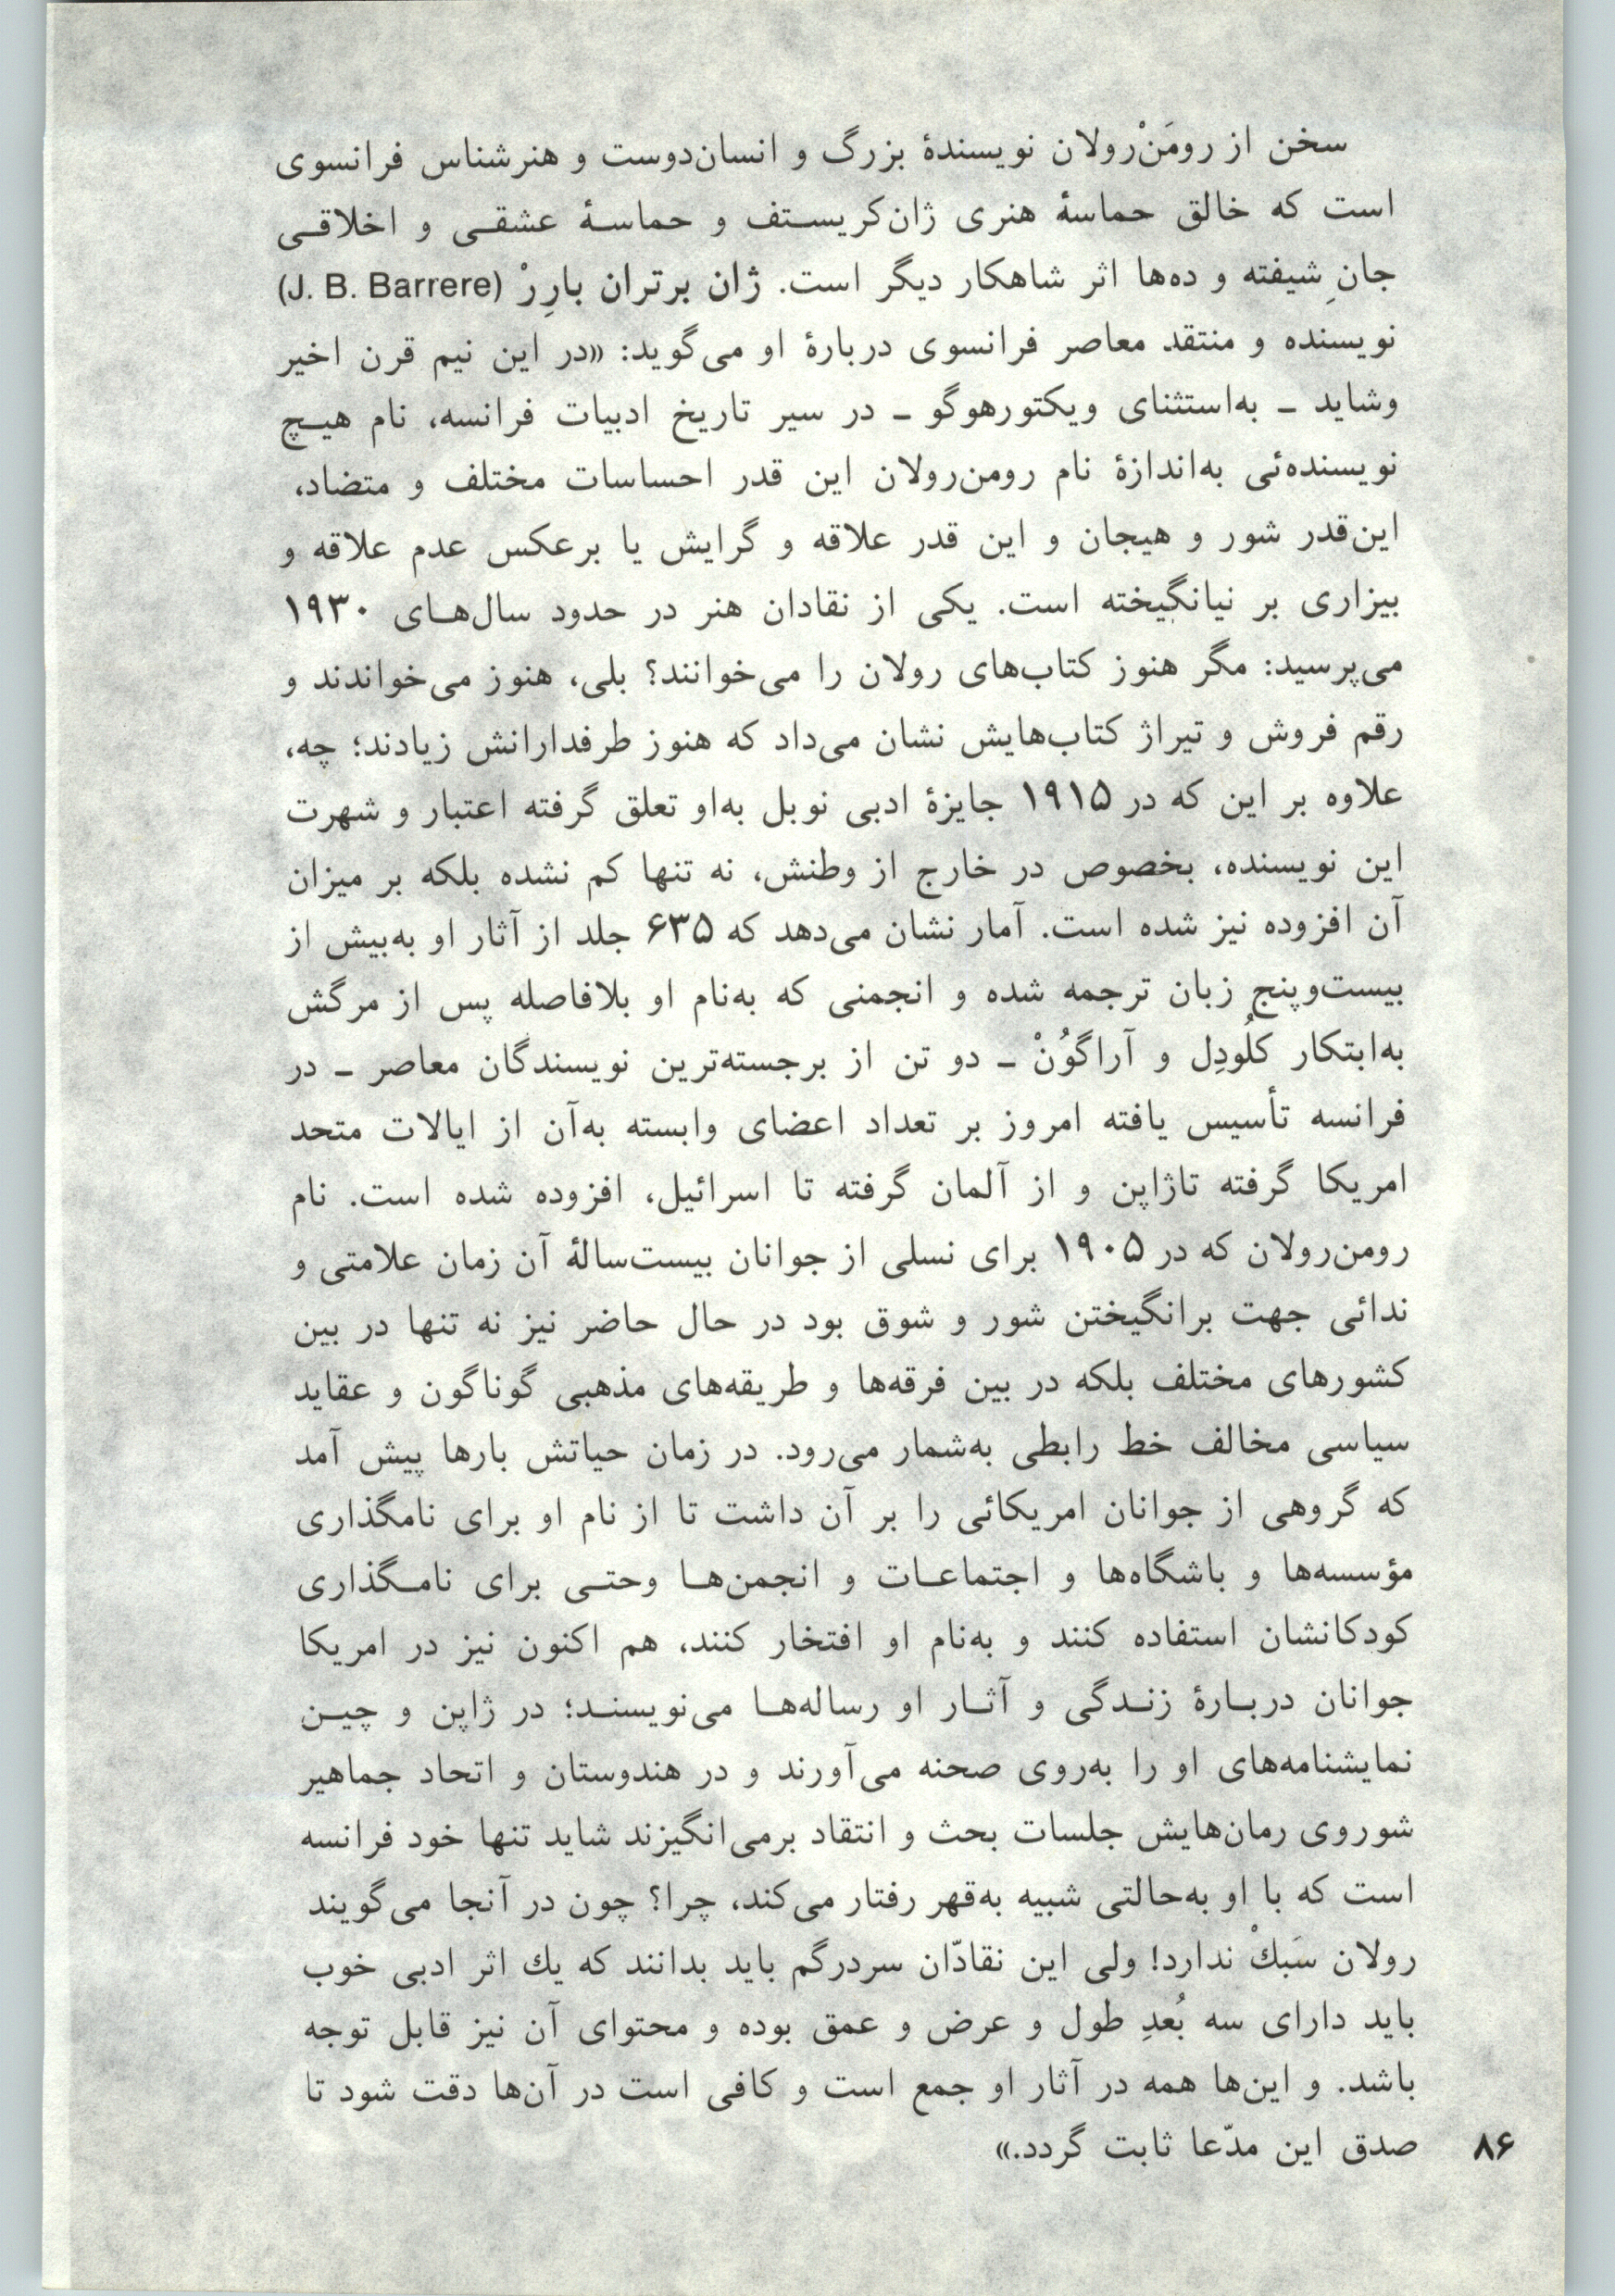 سخن از رومَنْ‌رولان نویسندهٔ بزرگ و انسان‌دوست و هنرشناس فرانسوی
است که خالق حماسهٔ هنری ژان‌کریستف و حماسهٔ عشقی و اخلاقی
جانِ شیفته و ده‌ها اثر شاهکار دیگر است. ژان برتران بارِرْ (J. B. Barrere)
نویسنده و منتقد معاصر فرانسوی دربارهٔ او می‌گوید: «در این نیم قرن اخیر
وشاید ـ به‌استثنای ویکتورهوگو ـ در سیر تاریخ ادبیات فرانسه، نام هیچ
نویسنده‌ئی به‌اندازهٔ نام رومن‌رولان این قدر احساسات مختلف و متضاد،
این‌قدر شور و هیجان و این قدر علاقه و گرایش یا برعکس عدم علاقه و
بیزاری بر نیانگیخته است. یکی از نقادان هنر در حدود سال‌های ۱۹۳۰
می‌پرسید: مگر هنوز کتاب‌های رولان را می‌خوانند؟ بلی، هنوز می‌خواندند و
رقم فروش و تیراژ کتاب‌هایش نشان می‌داد که هنوز طرفدارانش زیادند؛ چه،
علاوه بر این که در ۱۹۱۵ جایزهٔ ادبی نوبل به‌او تعلق گرفته اعتبار و شهرت
این نویسنده، بخصوص در خارج از وطنش، نه تنها کم نشده بلکه بر میزان
آن افزوده نیز شده است. آمار نشان می‌دهد که ۶۳۵ جلد از آثار او به‌بیش از
بیست‌وپنج زبان ترجمه شده و انجمنی که به‌نام او بلافاصله پس از مرگش
به‌ابتکار کلُودِل و آراگوُنْ ـ دو تن از برجسته‌ترین نویسندگان معاصر ـ در
فرانسه تأسیس یافته امروز بر تعداد اعضای وابسته به‌آن از ایالات متحد
امریکا گرفته تاژاپن و از آلمان گرفته تا اسرائیل، افزوده شده است. نام
رومن‌رولان که در ۱۹۰۵ برای نسلی از جوانان بیست‌سالهٔ آن زمان علامتی و
ندائی جهت برانگیختن شور و شوق بود در حال حاضر نیز نه تنها در بین
کشورهای مختلف بلکه در بین فرقه‌ها و طریقه‌های مذهبی گوناگون و عقاید
سیاسی مخالف خط رابطی به‌شمار می‌رود. در زمان حیاتش بارها پیش آمد
که گروهی از جوانان امریکائی را بر آن داشت تا از نام او برای نامگذاری
مؤسسه‌ها و باشگاه‌ها و اجتماعات و انجمن‌ها وحتی برای نامگذاری
کودکانشان استفاده کنند و به‌نام او افتخار کنند، هم اکنون نیز در امریکا
جوانان دربارهٔ زندگی و آثار او رساله‌ها می‌نویسند؛ در ژاپن و چین
نمایشنامه‌های او را به‌روی صحنه می‌آورند و در هندوستان و اتحاد جماهیر
شوروی رمان‌هایش جلسات بحث و انتقاد برمی‌انگیزند شاید تنها خود فرانسه
است که با او به‌حالتی شبیه به‌قهر رفتار می‌کند، چرا؟ چون در آنجا می‌گویند
رولان سَبكْ ندارد! ولی این نقادّان سردرگم باید بدانند که یك اثر ادبی خوب
باید دارای سه بُعدِ طول و عرض و عمق بوده و محتوای آن نیز قابل توجه
باشد. و این‌ها همه در آثار او جمع است و کافی است در آن‌ها دقت شود تا
صدق این مدّعا ثابت گردد.»
۸۶